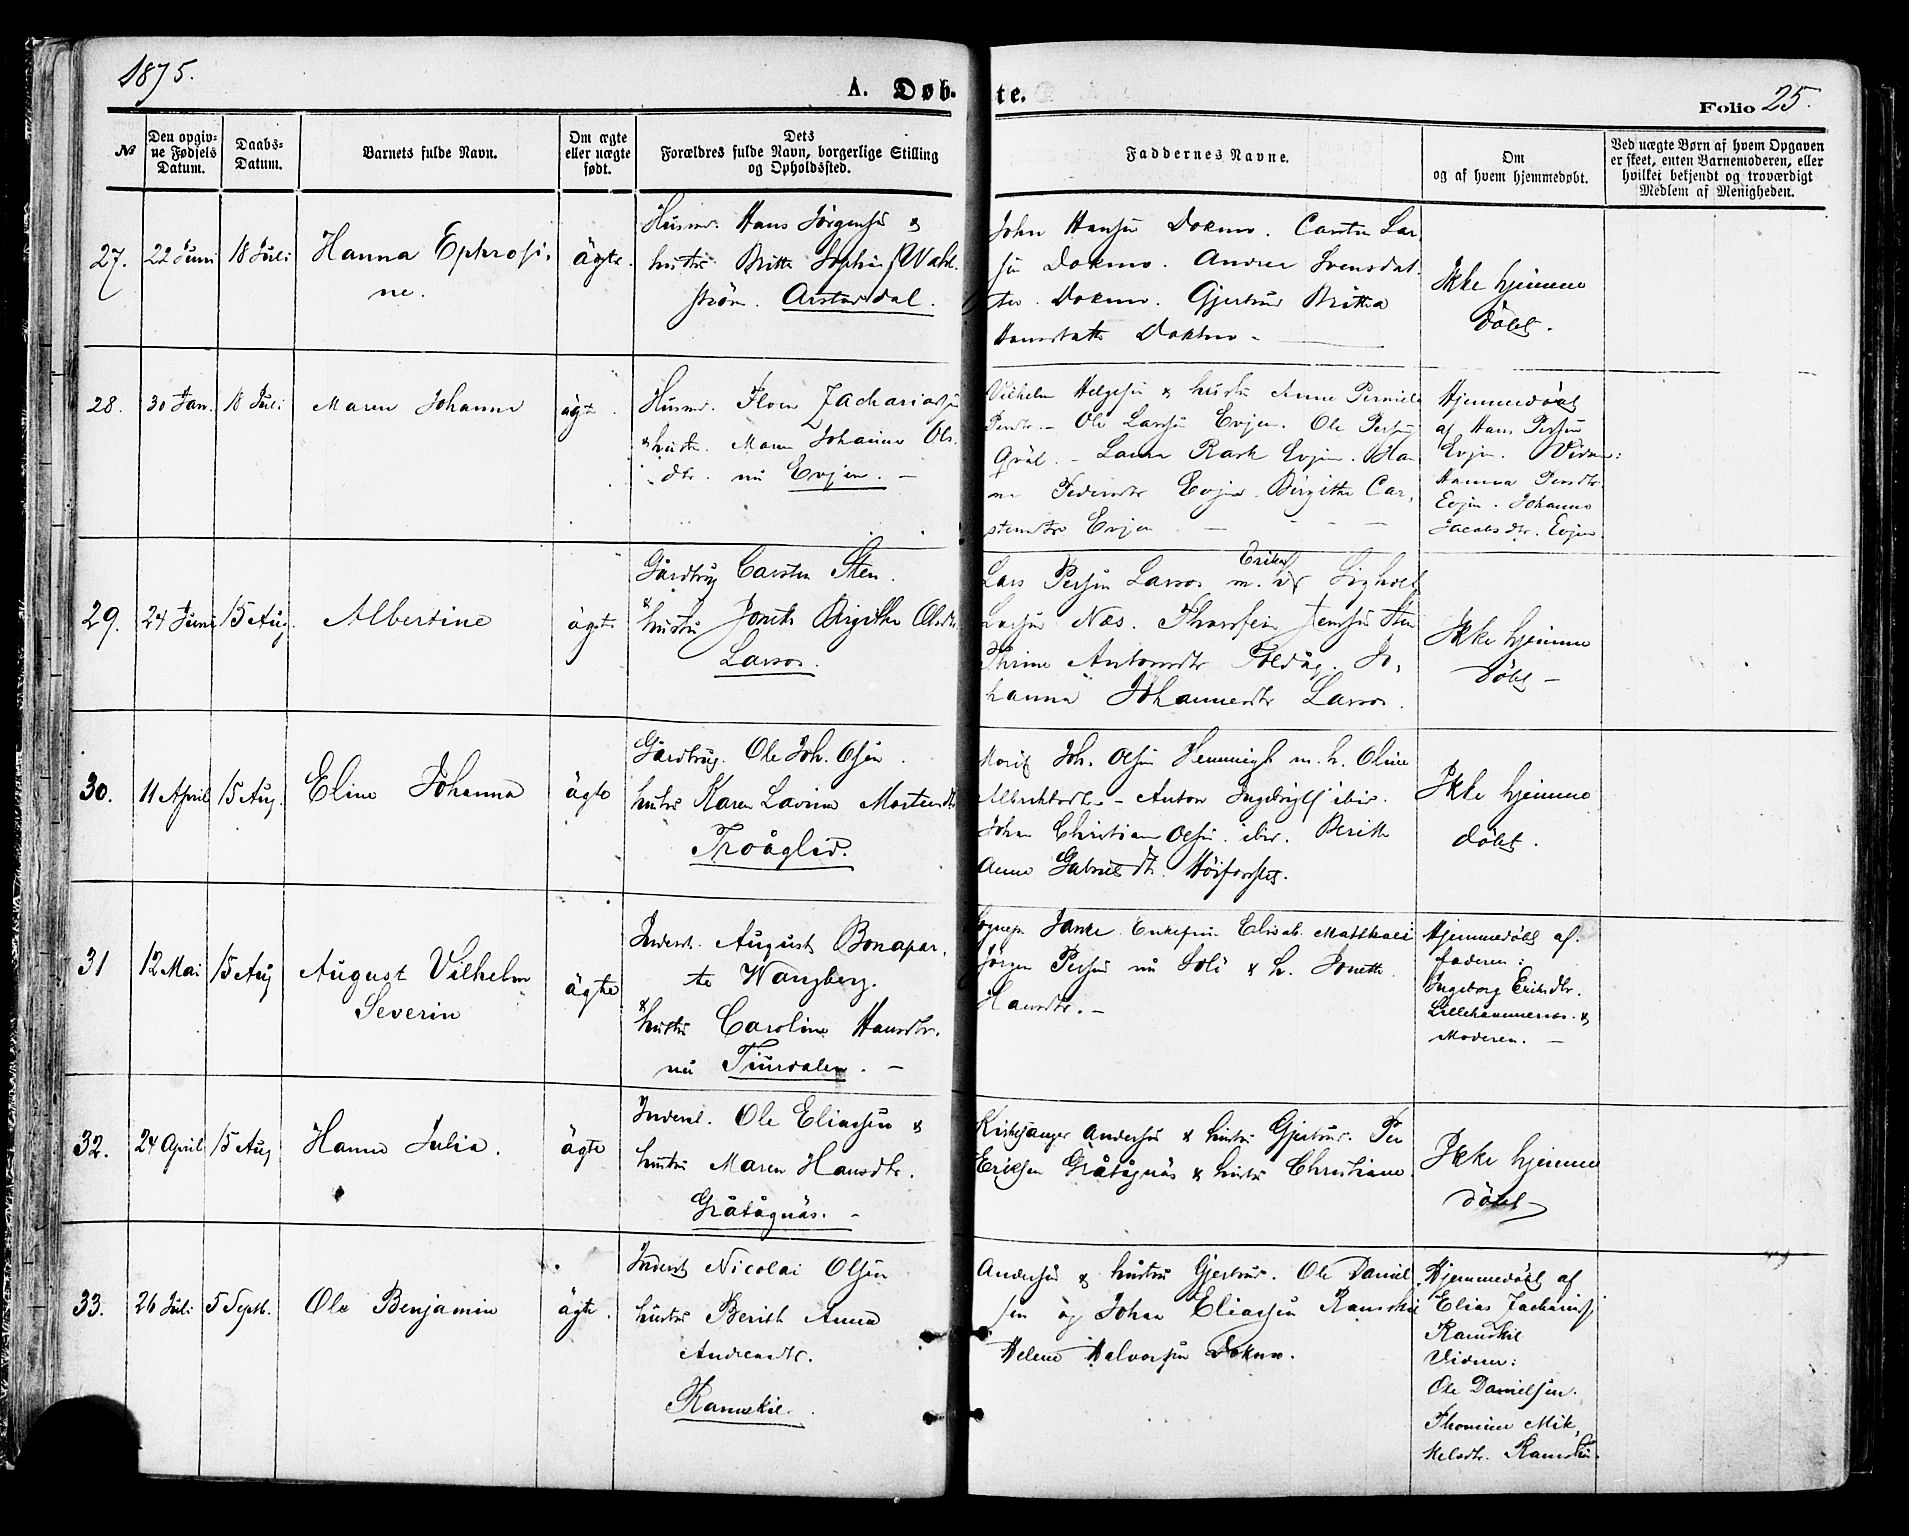 1875.
A. Døb-
te.
Folio 25.
№
Den opgiv-
ne Fødsels
Datum.
Daabs-
Datum.
Barnets fulde Navn.
Om ægte
eller uægte
født.
Dets
Forældres fulde Navn, borgerlige Stilling
og Opholdssted.
Faddernes Navne.
Om
og af hvem hjemmedøbt.
Ved uægte Børn af hvem Opgaven
er skeet, enten Barnemoderen, eller
hvilket bekjendt og troværdigt
Medlem af Menigheden.
27. 22 Juni 18 Juli
Hanna Ephrosi-
ne.
ägte.
Husmd. Hans Jørgensen &
hustru Britte Sophie Wahl-
strøm.
John Hansen Dokmo. Carsten Lar-
sen Dokmo. Andrea Svensdat-
ter Dokmo. Gjertrud Britha
Dokmo -
Ikke hjemme
döbt.
28. 30 Jan. 18 Juli
Maren Johanna
ägte.
Husmd. Zachariasen
& hustru Maren Johanna Ols-
dtr. nu Evjen. -
Vilhelm Helgesen & hustru Anne Pernille
Persdtr. - Ole Larsen Evjen. Ole Persen
- Rask Evjen. Han-
na Pedersdtr Evjen. Birgithe Car-
stensdtr Evjen
Hjemmedöbt
af Hans Persen
Evjen. Vidner:
Hanna Persdtr.
Evjen. Johanna
Jacobsdtr. Evjen
29. 24 Juni 15 Aug.
Albertine
ägte
Gårdbrug Carsten Sten.
& hustru Birgithe Olsdtr.
Larsos.
Lars Persen Larsos m. Eriks
Larsen Næs. Jensen Sten
Thrine Antonsdtr Foldåg. Jo-
hanna Johannesdtr Larsos.
Ikke hjemme
döbt -
30. 11 April 15 Aug.
Eline Johanna
ägte
Gårdbrug. Ole Joh. Olsen.
hustru Karen Lavina Mortensdtr
Tröåglid.
Joh. Olsen m. h. Oline
Albrektsdtr. - Anton ibid.
Johan Christian Olsen ibid. Berith
Anna Gabrielsdtr.
Ikke hjemme
döbt.
31 12 Mai 15 Aug
August Vilhelm
Severin
ägte
Inderst. August Bonapar-
te Wangberg.
& hustru Caroline Hansdtr.
nu -
Sognepr Enkefru Elisab.
Jörgen Persen nu & h. Jonette
Hansdtr. -
Hjemmedöbt af
faderen:
Ingeborg Eriksdtr.
&
Moderen. -
32. 24 April 15 Aug
Hanna Julia.
ägte
Inderst. Ole Eliassen &
hustru Maren Hansdtr.
Gråtågnäs. -
Kirkesanger Andersen & hustru Gjertrud. Per
Eriksen Gråtågnäs & hustru Christiane
Ikke hjemme
döbt
33. 26 Juli 5 Septb.
Ole Benjamin
ägte.
Inderst Nicolai Olsen
hustru Berith Anna
Andreasdtr.
Ramskil.
Andersen & hustru Gjertrud. Ole Daniel-
sen og Johan Eliassen Ramskil
Helene Halvorsen Dokmo.
Hjemmedöbt af
Elias Zachariass.
Ramskil
Vidner:
Ole Danielsen.
Thomine Mik-
kelsdtr. Ramskil.